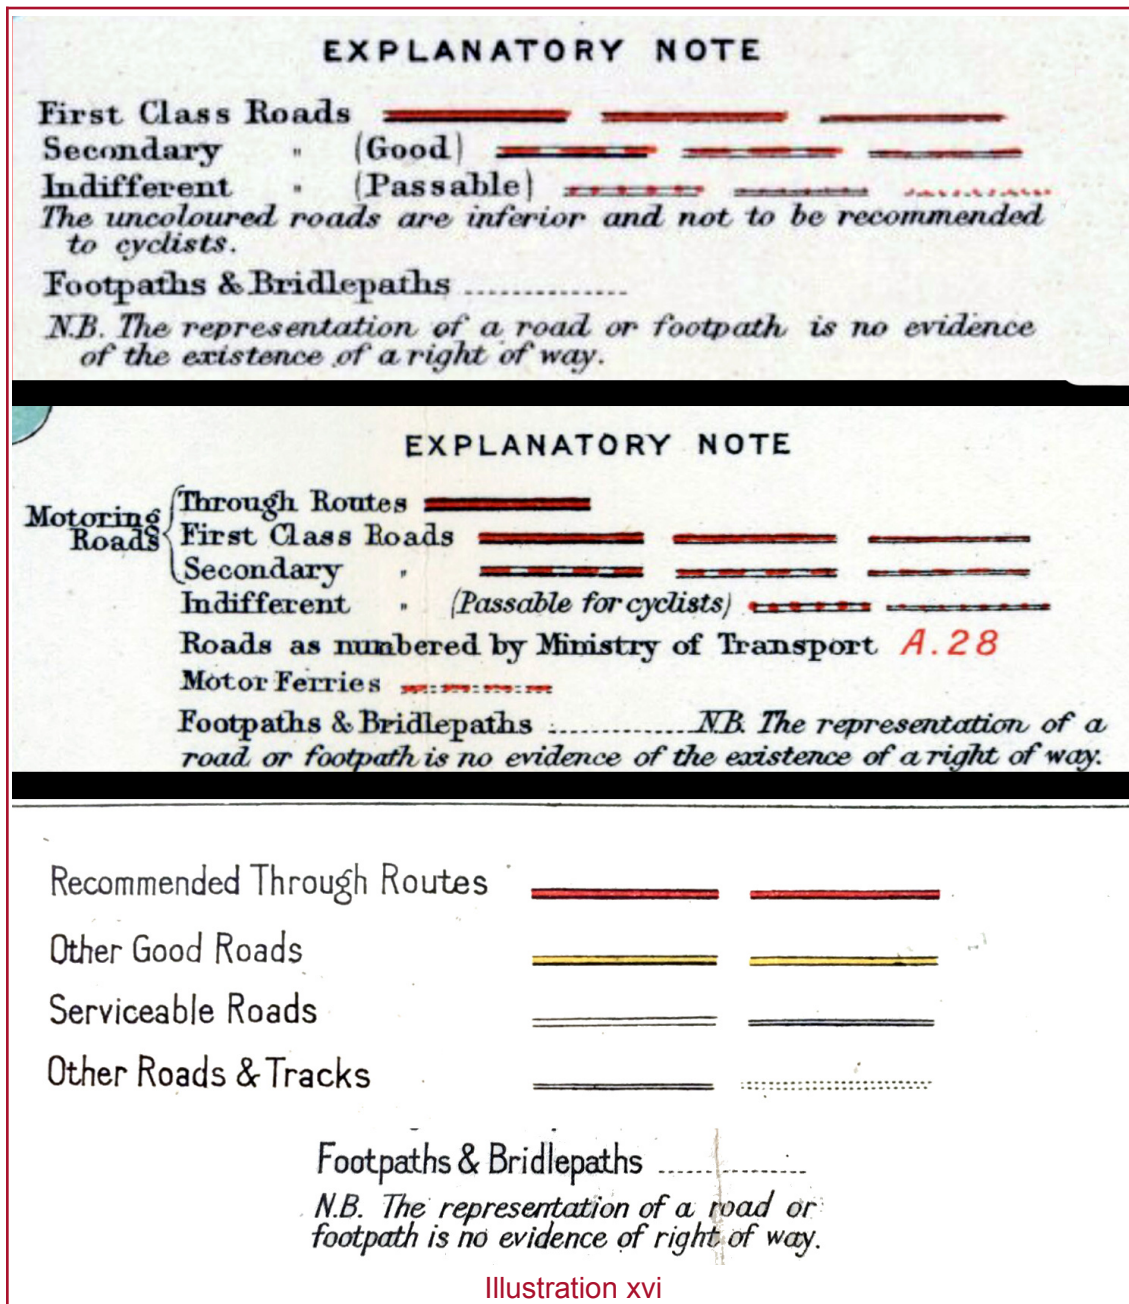 EXPLANATORY NOTE
First Class Roads
Secondary " (Good)
Indifferent " (Passable)
The uncoloured roads are inferior and not to be recommended
to cyclists.
Footpaths & Bridlepaths ..............
N.B. The representation of a road or footpath is no evidence
of the existence of a right of way.
EXPLANATORY NOTE
Motoring Roads
Through Routes
First Class Roads
Secondary "
Indifferent " (Passable for cyclists)
Roads as numbered by Ministry of Transport A.28
Motor Ferries
Footpaths & Bridlepaths ..............N.B. The representation of a
road or footpath is no evidence of the existence of a right of way.
Recommended Through Routes
Other Good Roads
Serviceable Roads
Other Roads & Tracks
Footpaths & Bridlepaths ..............
N.B. The representation of a road or
footpath is no evidence of right of way.
Illustration xvi